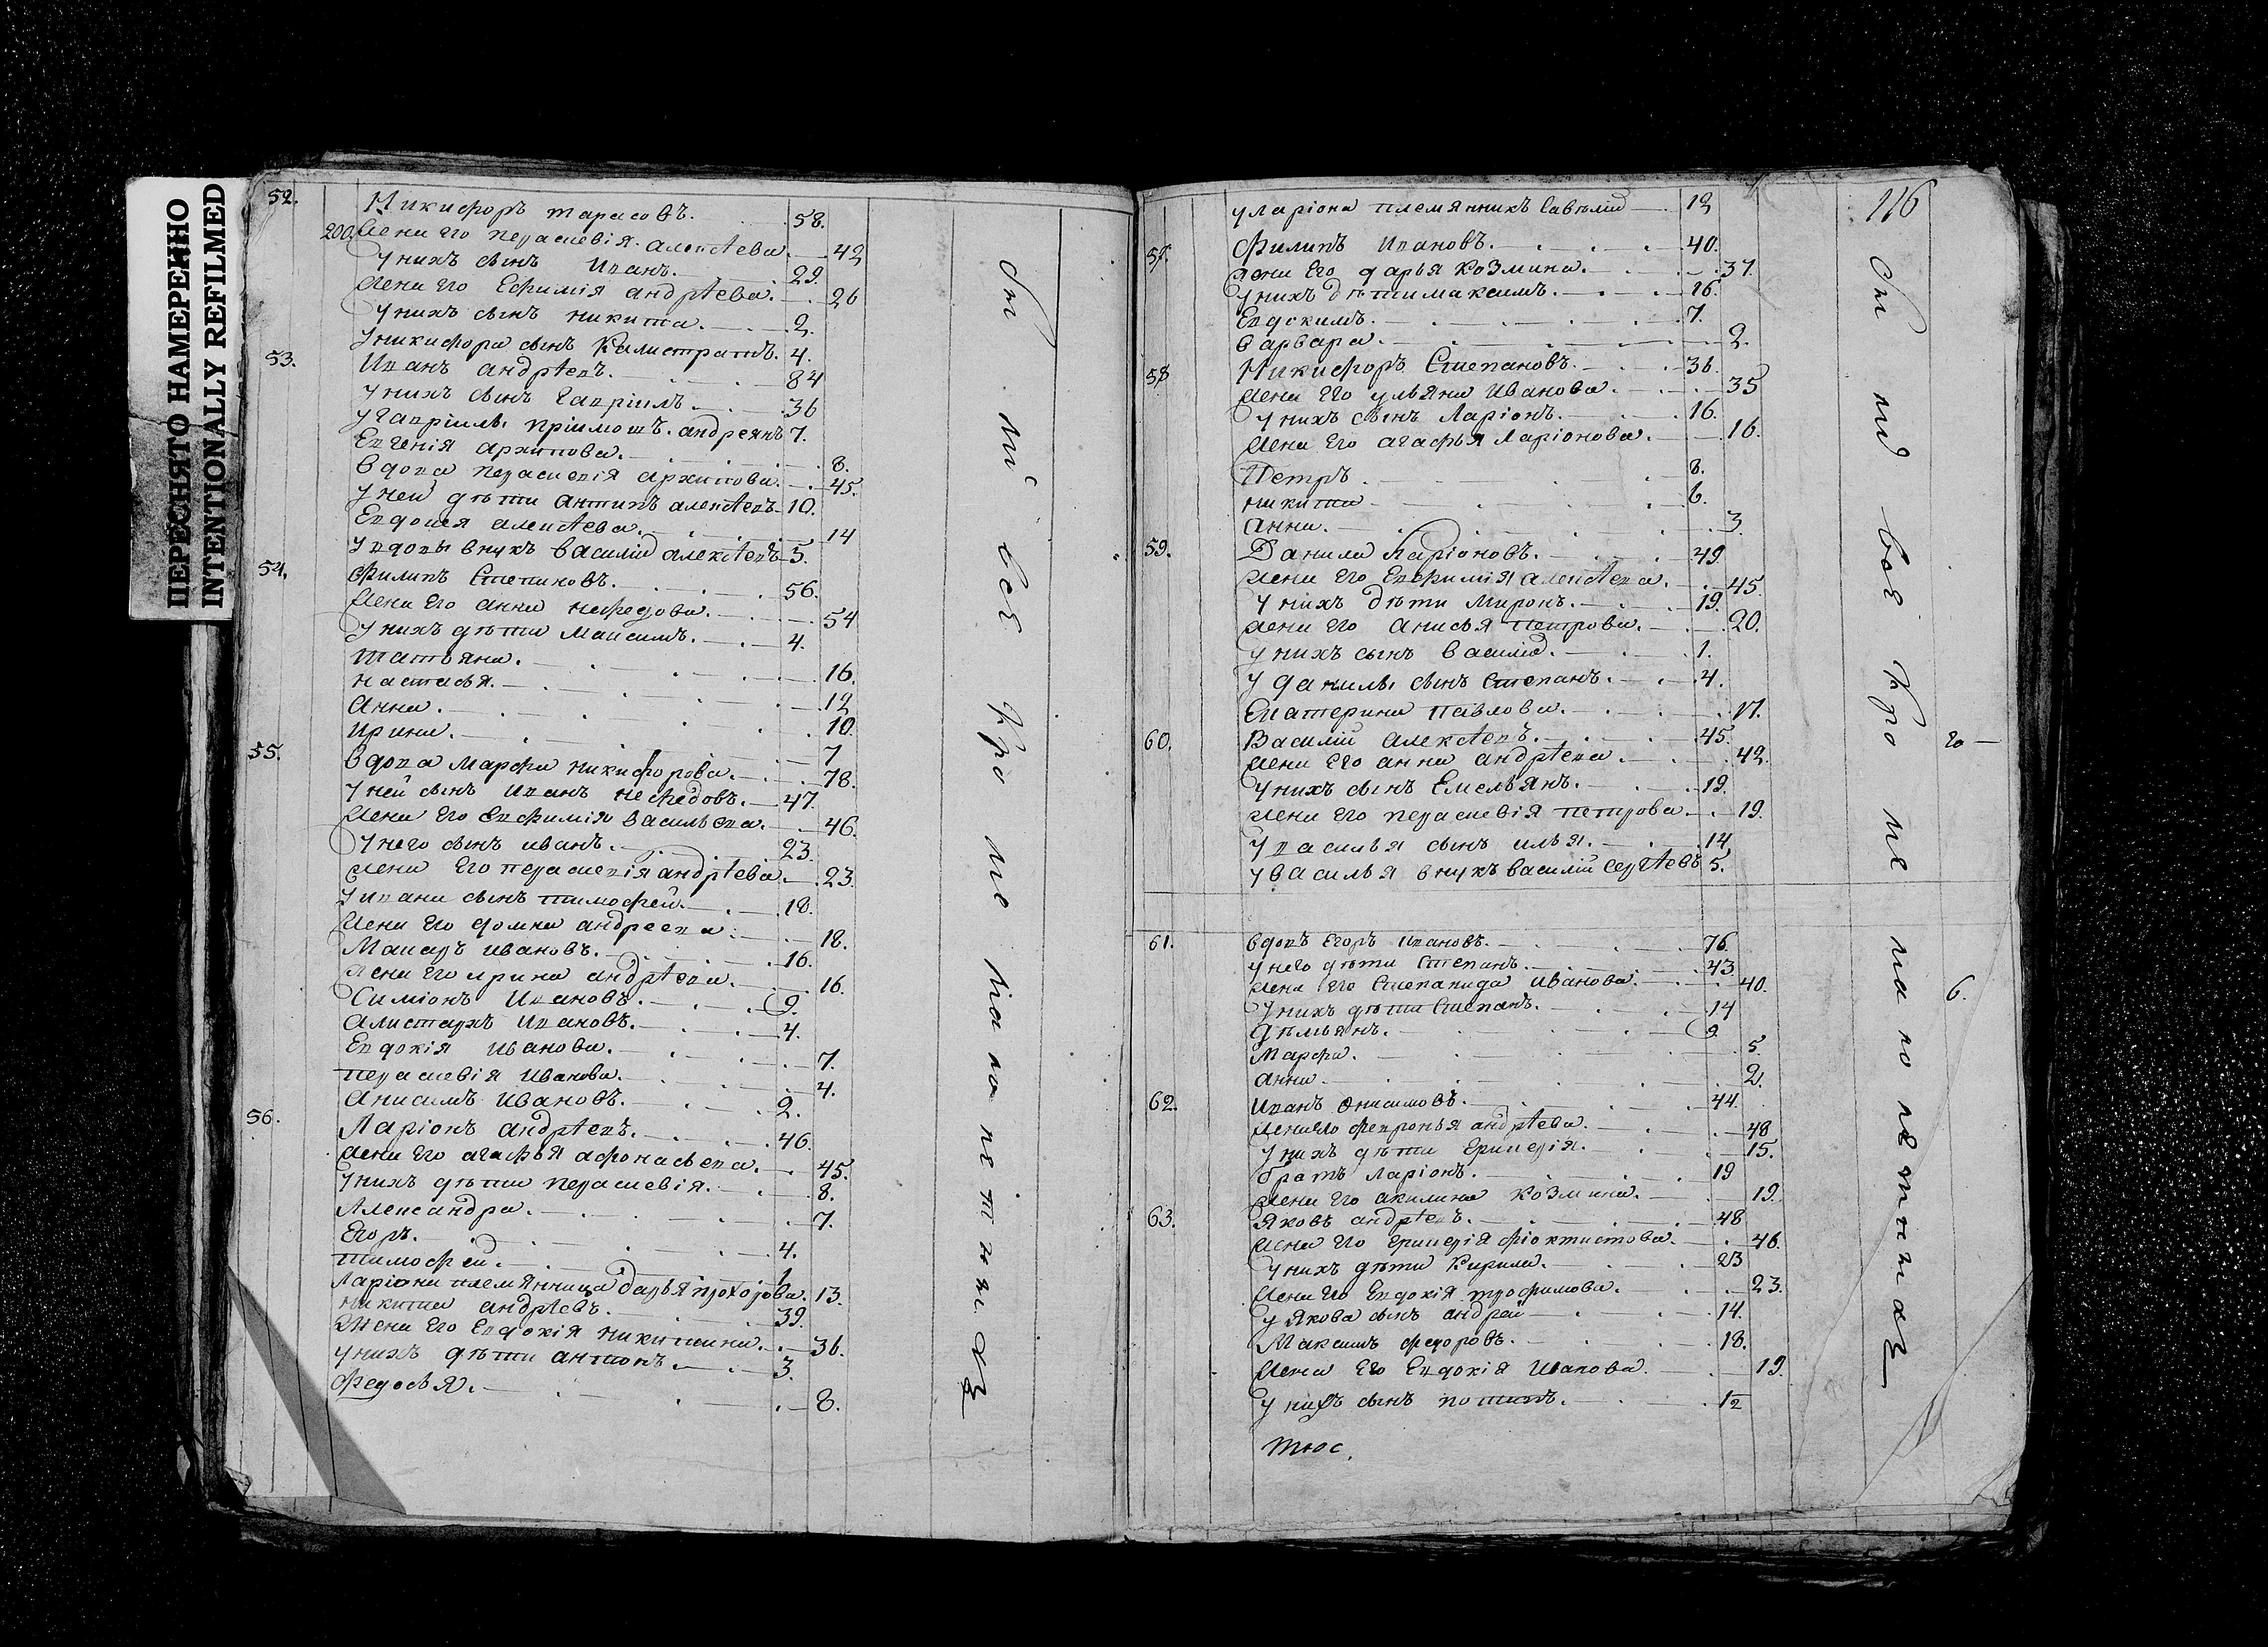 ПЕРЕСНЯТО НАМЕРЕННО
INTENTIONALLY REFILMED
52. Никифоръ тарасовъ. 58.
200. Жена его перасковія алексѣева 42
У нихъ сынъ Иванъ. 29.
Жена его Ефимія андрѣева. 26
У нихъ сынъ никита. 2.
У никифора сынъ Калистратъ. 4.
53. Иванъ андрѣевъ. 84
У нихъ сынъ Гавріилъ. 36
У Гавріилы пріимошъ андреянъ 7.
Евгенія архипова. 8.
вдова перасковія архипова. 45.
У ней дѣти антипъ алексѣевъ 10.
Евдокея алексѣева. 14
У вдовы внукъ василій алексѣевъ 5.
54. Филипъ Степановъ. 56.
Жена Его анна нефедова. 54
У нихъ дѣти Максимъ. 4.
татьяна. 16.
настасья. 12
Анна. 10.
ирина. 7
55. вдова Марфа никифорова. 78.
У ней сынъ Иванъ нефедовъ. 47.
Жена Его Евфимія васильева. 46.
У него сынъ иванъ. 23.
Жена Его перасковія андрѣева. 23.
У ивана сынъ тимофей. 18.
Жена Его домна андреева. 18.
Макаръ ивановъ. 16.
Жена Его ирина андрѣева. 16.
Симіонъ Ивановъ. 9.
Алистархъ Ивановъ. 4.
Евдокія Иванова. 7.
перасковія Иванова. 4.
Анисимъ Ивановъ. 2.
56. Ларіонъ андрѣевъ. 46.
Жена Его агафья афонасьева. 45.
У нихъ дѣти перасковія. 8.
Александра. 7.
Егоръ. 4.
тимофеи. 1
Ларіона племянница дарья прохорова. 13.
никита андрѣевъ. 39.
Жена Его Евдокія никитина. 36.
У нихъ дѣти антонъ. 3.
Федосья. 8.
116
У ларіона племянникъ Савелій 12
57. Филипъ Ивановъ. 40.
Жена Его дарья козмина. 37.
У нихъ дѣти максимъ. 16.
Евдокимъ. 7.
варвара. 2.
58 Никифоръ Степановъ. 36.
Жена Его ульяна Иванова. 35
У нихъ сынъ Ларіонъ. 16.
Жена Его агафья Ларіонова. 16.
Петръ. 8.
никита 6.
анна. 3.
59. Данила Ларіоновъ. 49.
Жена Его Евфимія алексѣева. 45.
У нихъ дѣти Миронъ. 19.
Жена Его анисья петрова. 20.
У нихъ сынъ василій. 1.
У данилы сынъ Степанъ. 4.
Екатерина Павлова. 17.
60. Василій алексѣевъ. 45.
Жена Его анна андрѣева. 42.
У нихъ сынъ Емельянъ. 19.
Жена Его перасковія петрова. 19.
У василья сынъ илья. 14.
У василья внукъ василій Сергѣевъ 5.
20
61. вдовъ Егоръ Ивановъ. 76.
У него дѣти Степанъ. 43.
Жена Его Степанида Иванова. 40.
У нихъ дѣти Степанъ. 14
Дѣмьянъ. 9.
Марфа. 5.
анна. 2.
6.
62. Иванъ онисимовъ. 44.
Жена Его февронья андрѣева. 48
У нихъ дѣти 15.
братъ Ларіонъ. 19
Жена Его акилина козмина. 19.
63. Яковъ андрѣевъ. 48
Жена Его фіоктистова. 46.
У нихъ дѣти Кирила. 23
Жена Его Евдокія трофимова. 23.
У Якова сынъ андрей 14.
Максимъ федоровъ. 18.
Жена Его Евдокія Иванова. 19.
У нихъ сынъ потапъ. 1/2